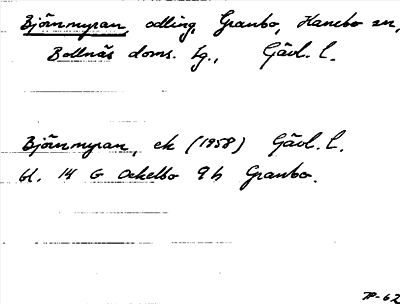 Björnmyran, odling, Granbo, Hanebo sn,
Bollnäs doms. tg., Gävl. l.
Björnmyran, ek (1958) Gävl. l.
bl. 14 G Ockelbo 9h Granbo.
-62